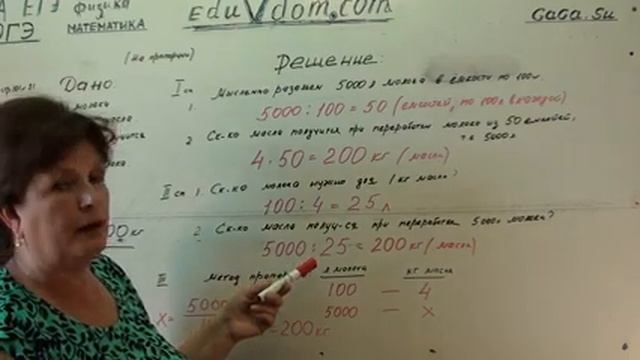 ЕГЭ физика
ОГЭ МАТЕМАТИКА
EduVdom.com
GaGa.Su
Решение:
Дано:
I сп Мысленно разольём 5000 л молока в ёмкости по 100 л.
1. 5000 : 100 = 50 (емкостей, по 100 л в каждой)
2 Ск-ко масла получится при переработке молока из 50 емкостей,
т.е 5000 л
4 · 50 = 200 кг (масла)
II сп 1. Ск-ко молока нужно для 1 кг масла?
100 : 4 = 25 л
2. Ск-ко масла получ-ся при переработке 5000 л молока?
5000 : 25 = 200 кг (масла)
III Метод л молока кг масла
100 — 4
5000 — x
x = 5000
= 200 кг